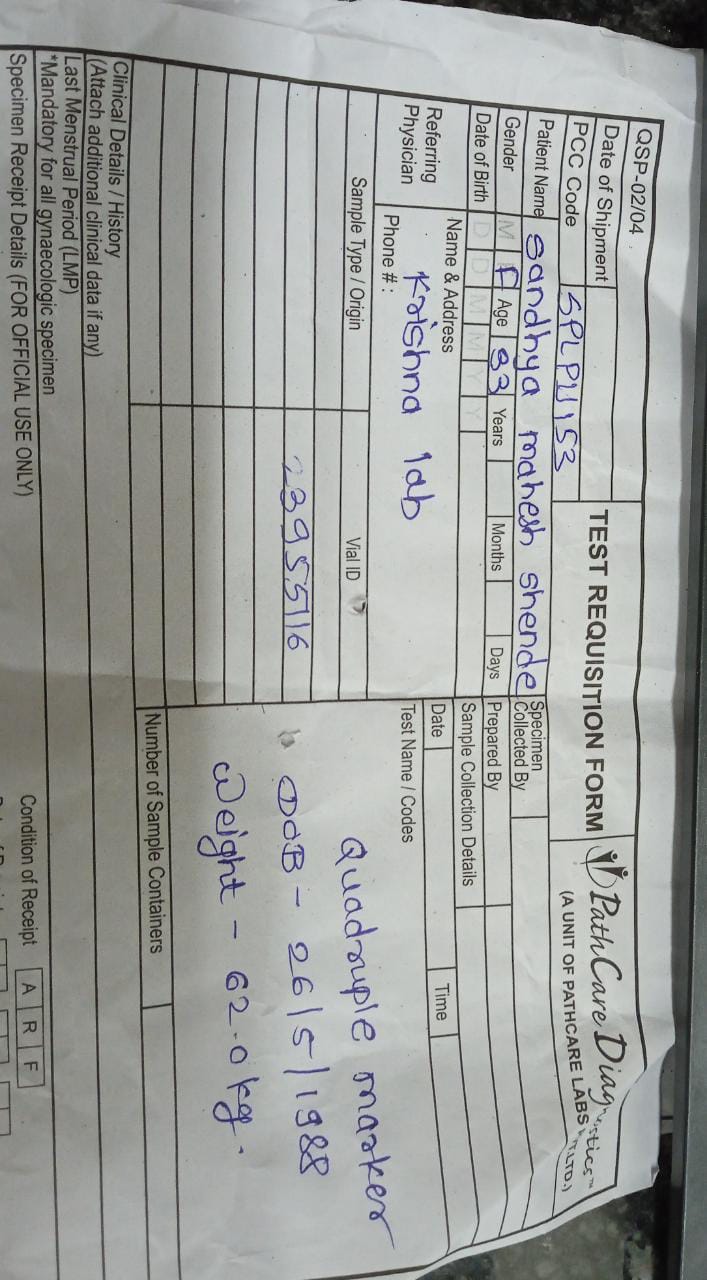 QSP-02/04
TEST REQUISITION FORM
PathCare Diagnostics™
(A UNIT OF PATHCARE LABS LTD.)
Date of Shipment
PCC Code SPLPU153
Patient Name Sandhya mahesh shende
Gender M F Age 33 Years Months Days
Date of Birth D D M M Y Y
Specimen Collected By
Prepared By
Sample Collection Details
Date Time
Referring Physician
Name & Address
Krishna lab
Phone #:
Test Name / Codes
Quadruple marker
DOB - 26/5/1988
Weight - 62.0 kg.
Sample Type / Origin Vial ID
23955116
Number of Sample Containers
Clinical Details / History
(Attach additional clinical data if any)
Last Menstrual Period (LMP)
*Mandatory for all gynaecologic specimen
Specimen Receipt Details (FOR OFFICIAL USE ONLY)
Condition of Receipt A R F